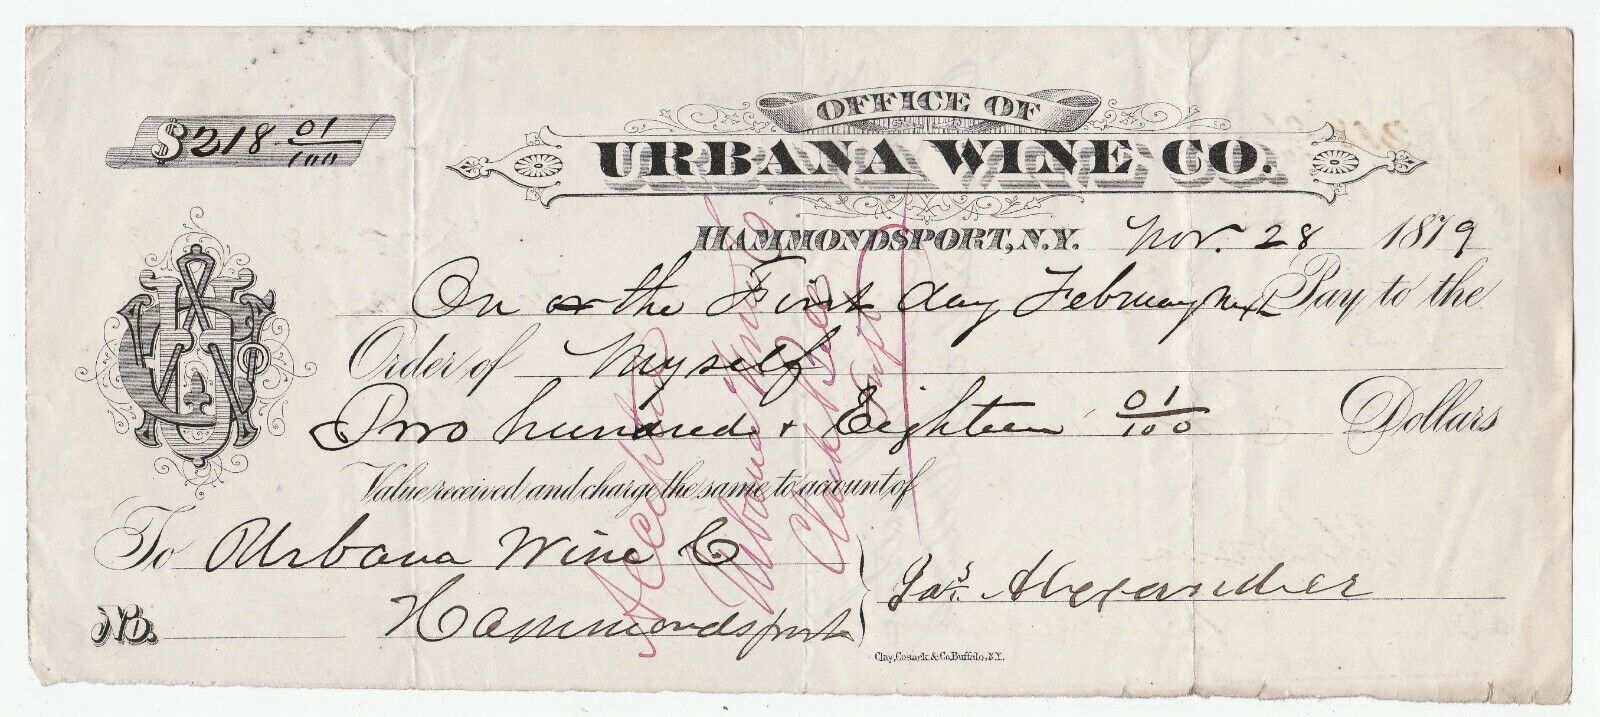 $218 01/100
OFFICE OF
URBANA WINE CO.
HAMMONDSPORT, N.Y. Nov. 28 1879
On or the First day February Next Pay to the
Order of Myself
Two hundred & Eighteen 01/100 Dollars
Value received and charge the same to account of
To Urbana Wine Co
Hammondsport
Jas. Alexander
No.
Clay, Cosack & Co. Buffalo, N.Y.
Accepted
Urbana Wine Co
Clark Bell